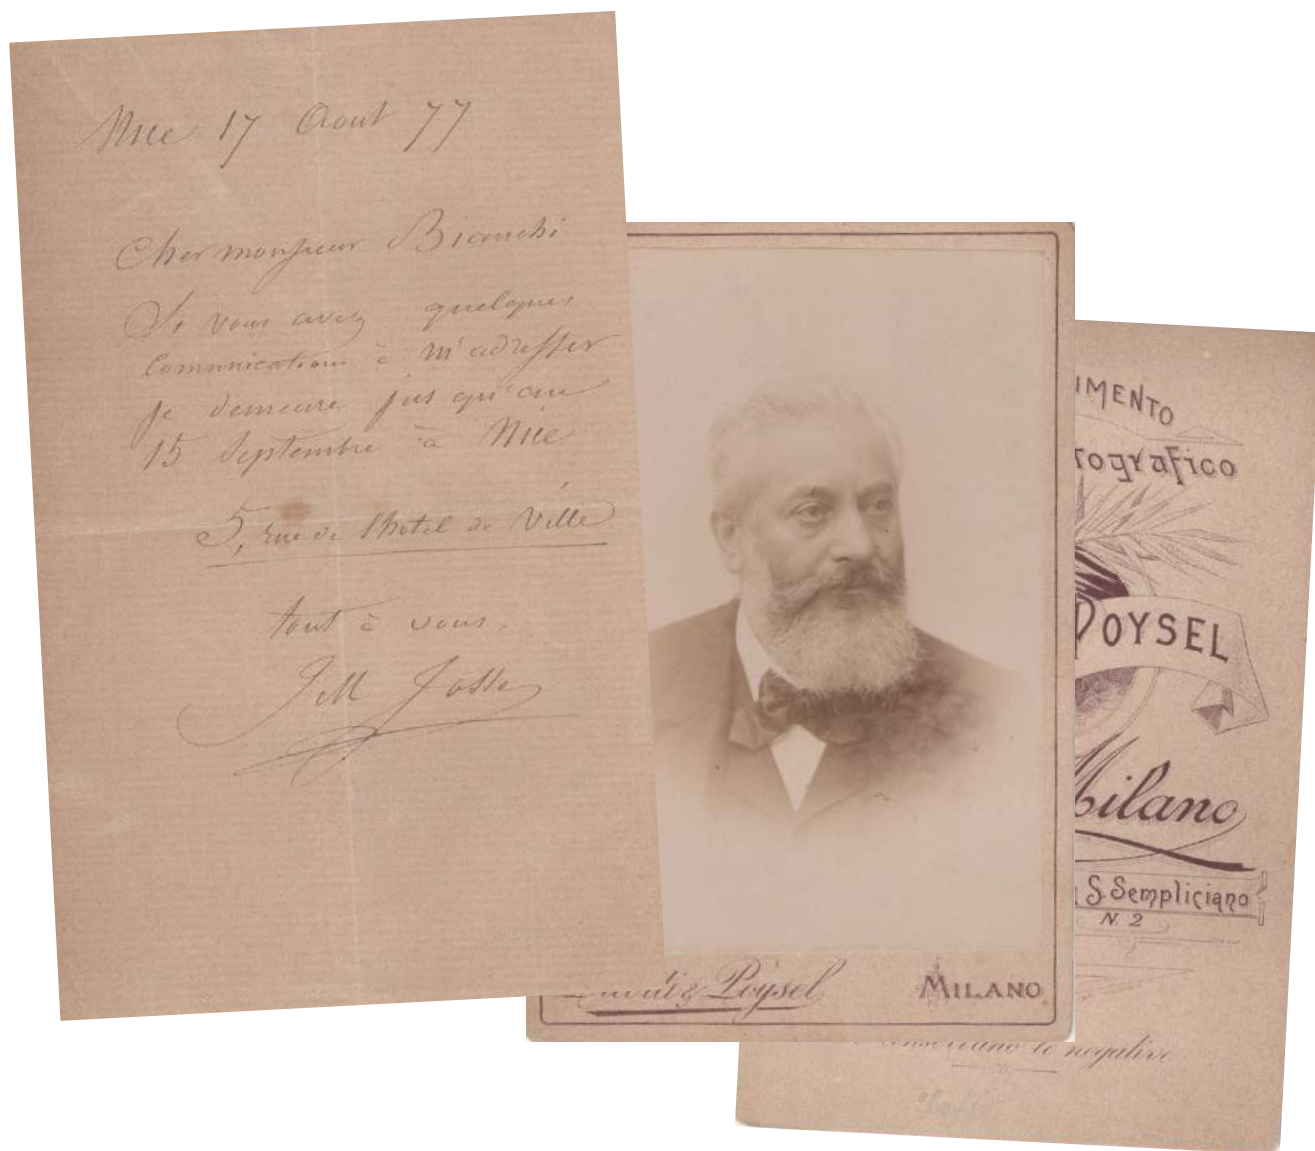 Nice 17 Aout 77
Cher monsieur Bianchi
Si vous avez quelques
communications à m'adresser
je demeure jusqu'au
15 Septembre à Nice
5, rue de l'hotel de Ville
tout à vous.
JM Josse
& Poysel
MILANO
IMENTO
tografico
POYSEL
Milano
S. Sempliciano
N. 2
le negative